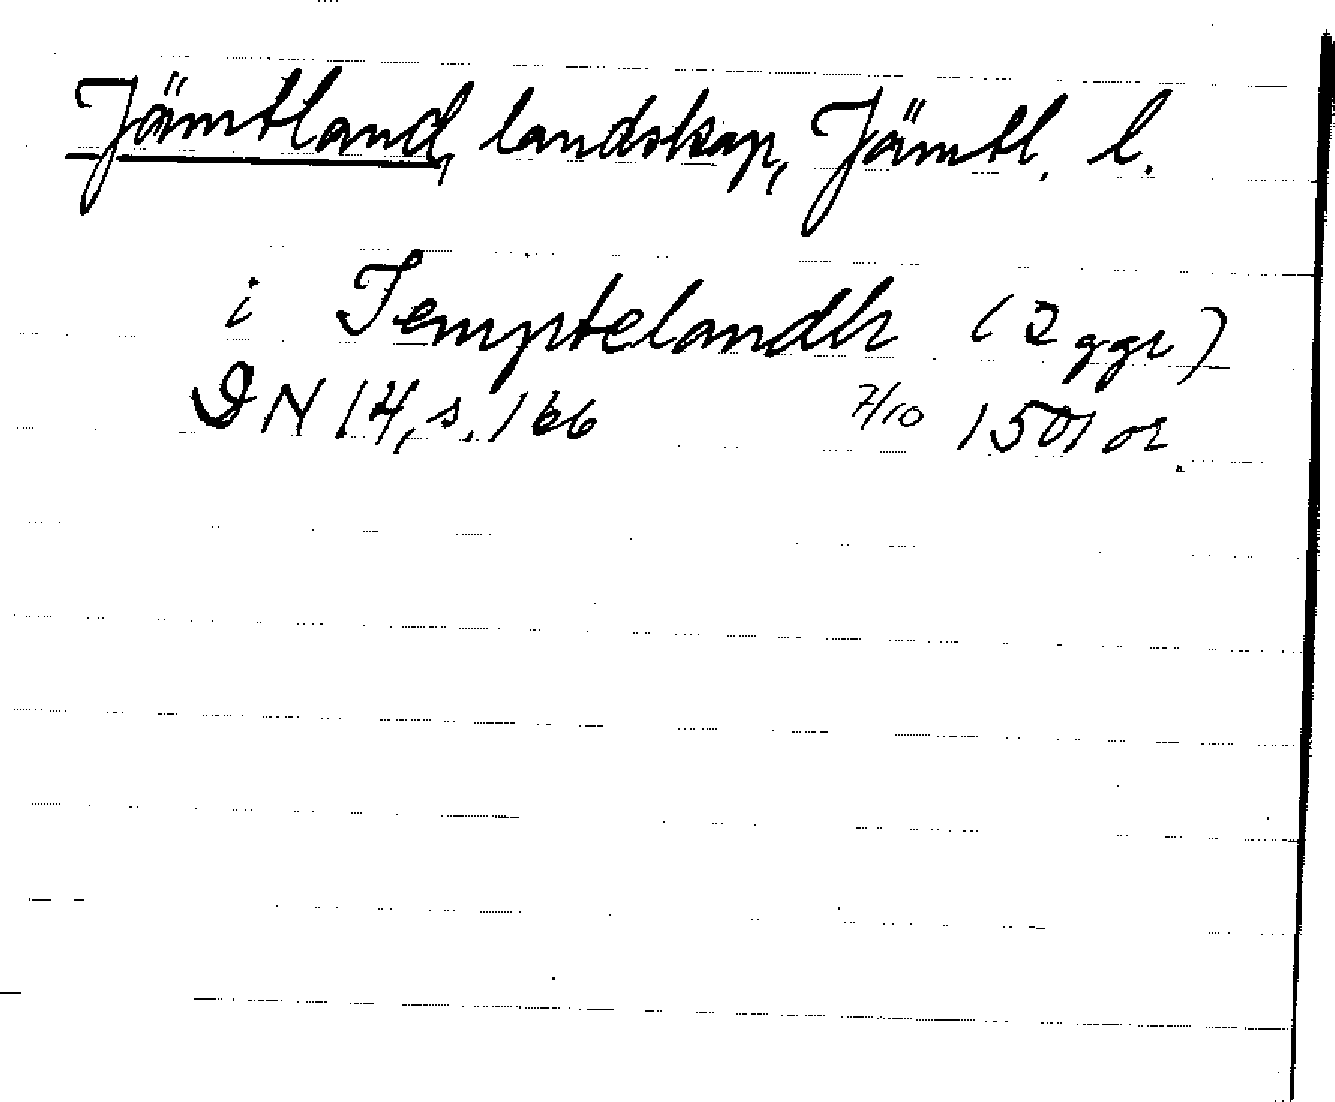 Jämtland, landskap, Jämtl. l.
i Jemptelandh (2 ggr)
DN 14, s. 166 7/10 1501 or.